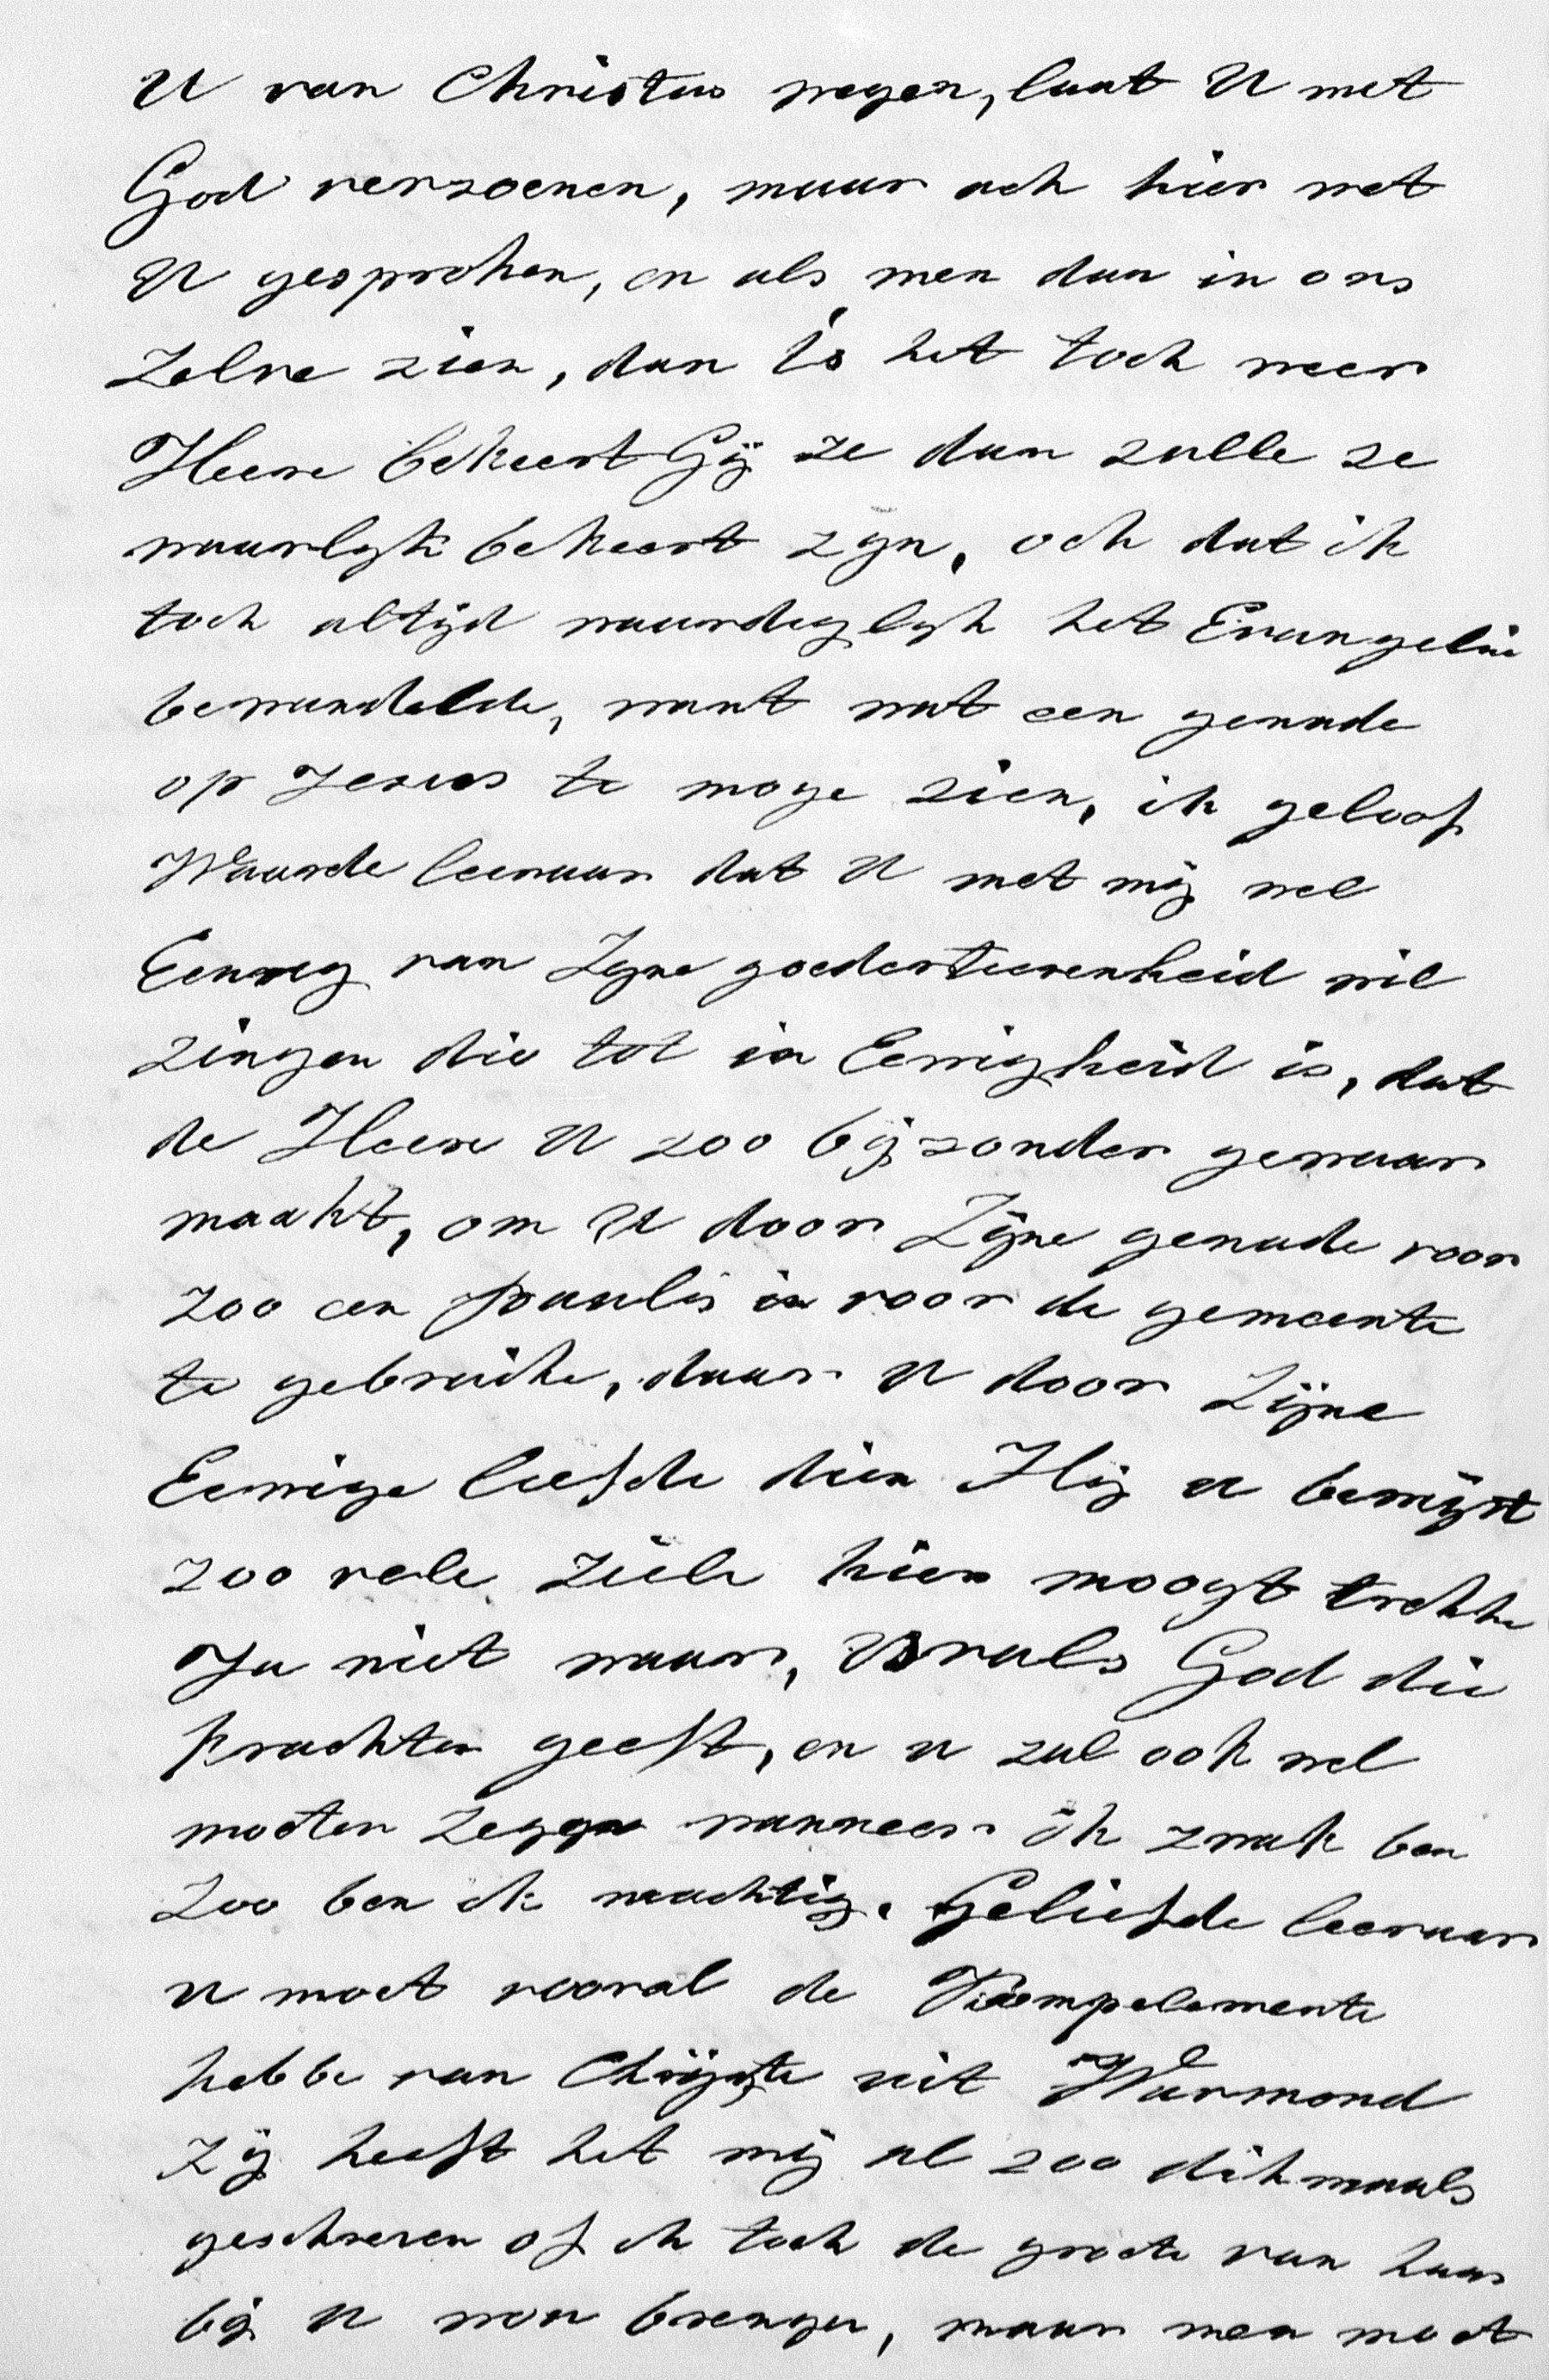 U van Christus wegen, laat U met
God verzoenen, maar ach hier met
U gesproken, en als men dan in ons
Zelve zien, dan is het toch weer
Heere bekeert Gij ze dan zulle ze
waarlyk bekeert zyn, och dat ik
toch altijd waardeglyk het Evangelie
bewandelde, want wat een genade
op Jezus te moge zien, ik geloof
Waarde leeraar dat U met mij wel
Eeuweg van Zyne goedertierenheid wil
zingen die tot in Eewigheid is, dat
de Heere U zoo bijzonder gewaar
maakt, om U door Zijne genade voor
zoo een paulis in voor de gemeente
te gebruike, daar U door Zijne
Eewige liefde dien Hij u bewijst
zoo vele ziele hier moogt trekke
Ja niet waar, U vals God die
krachten geeft, en u zal ook wel
moeten zeggen wanneer ik zwak ben
Zoo ben ik machtig. Geliefde leeraar
u moet vooral de Kompelemente
hebbe van Chrijste uit Warmond
Zij heeft het mij al zoo dikmaals
geschreven of ik toch de groete van haar
bij U wou brengen, maar men moet